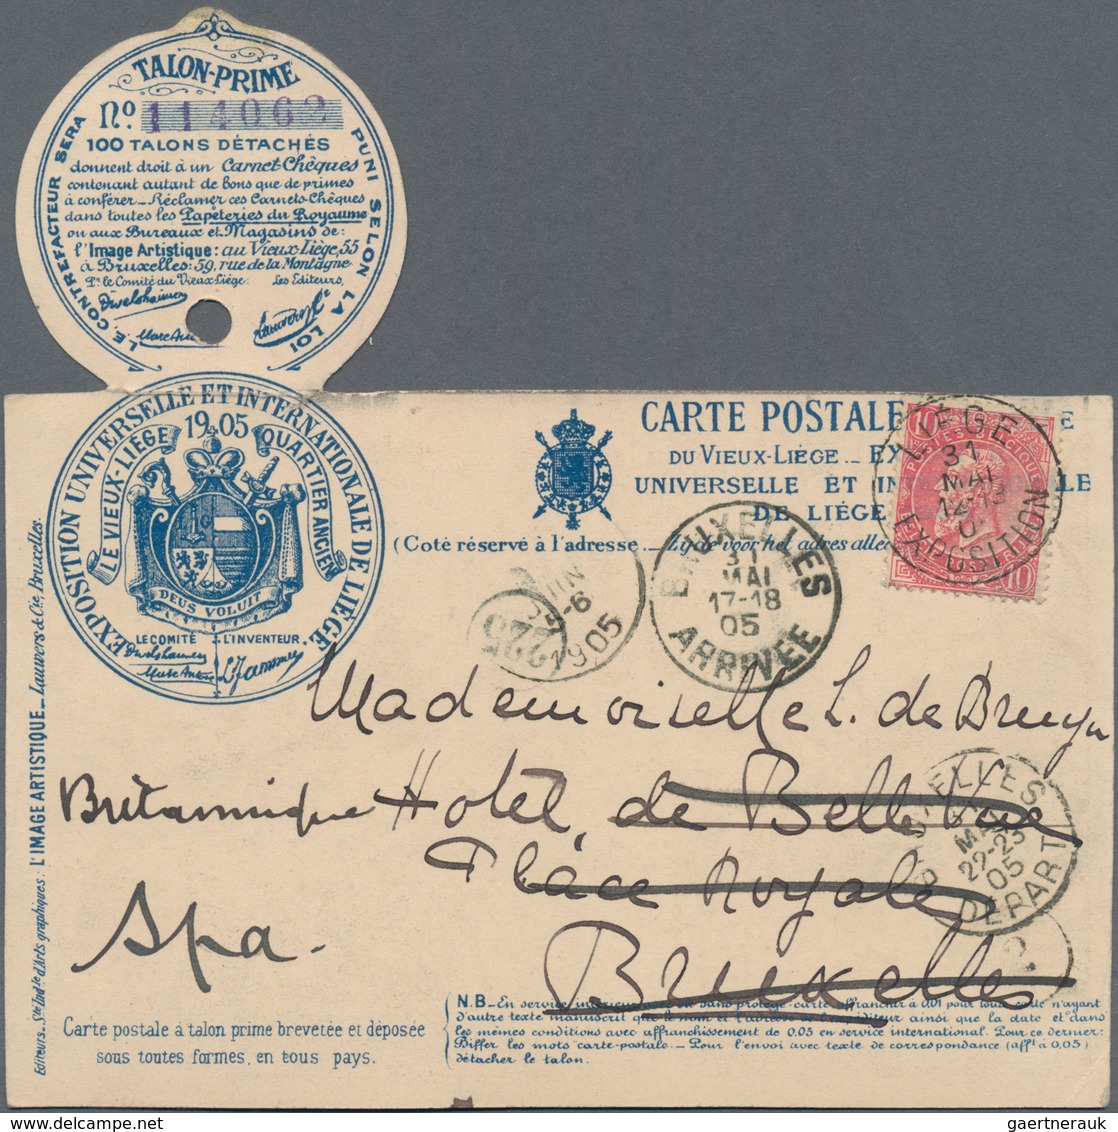 TALON-PRIME
No. 114062
100 TALONS DÉTACHÉS
donnent droit à un Carnet-Chèques
contenant autant de bons que de primes
à conférer _ Réclamer ces Carnets-Chèques
dans toutes les Papeteries du Royaume
ou aux Bureaux et Magasins de:
l'Image Artistique: au Vieux-Liège, 55
à Bruxelles: 59, rue de la Montagne
Pr. le Comité du Vieux-Liège: Les Editeurs,
LE CONTREFACTEUR SERA PUNI SELON LA LOI
EXPOSITION UNIVERSELLE ET INTERNATIONALE DE LIÈGE
1905
LE VIEUX-LIÈGE QUARTIER ANCIEN
DEUS VOLUIT
LE COMITÉ L'INVENTEUR
CARTE POSTALE
DU VIEUX-LIÈGE _ EX
UNIVERSELLE ET IN LE
DE LIÈGE
(Coté réservé à l'adresse _ Zijde voor het adres
LIÈGE
31
MAI
12-13
EXPOSITION
10 10
BRUXELLES
31
MAI
17-18
05
ARRIVÉE
JUIN
6
1905
225
Mademoiselle L. de Bruyn
Britannique Hotel de Bellevue
Place Royale
Spa.
Bruxelles
BRUXELLES
MAI
22-23
05
DÉPART
2
Carte postale à talon prime brevetée et déposée
sous toutes formes, en tous pays.
N.B _ En service intérieur ou sans protège-carte affranchir à 0,01 pour toute carte n'ayant
d'autre texte manuscrit que le nom et l'adresse de l'expéditeur ainsi que la date et dans
les mêmes conditions avec affranchissement de 0.05 en service international. Pour ce dernier:
Biffer les mots carte-postale _ Pour l'envoi avec texte de correspondance (afft à 0,05)
détacher le talon.
Editeurs _ Sté Indle d'Arts graphiques: L'IMAGE ARTISTIQUE _ Lauwers & Cie, Bruxelles.
gaertnerauk